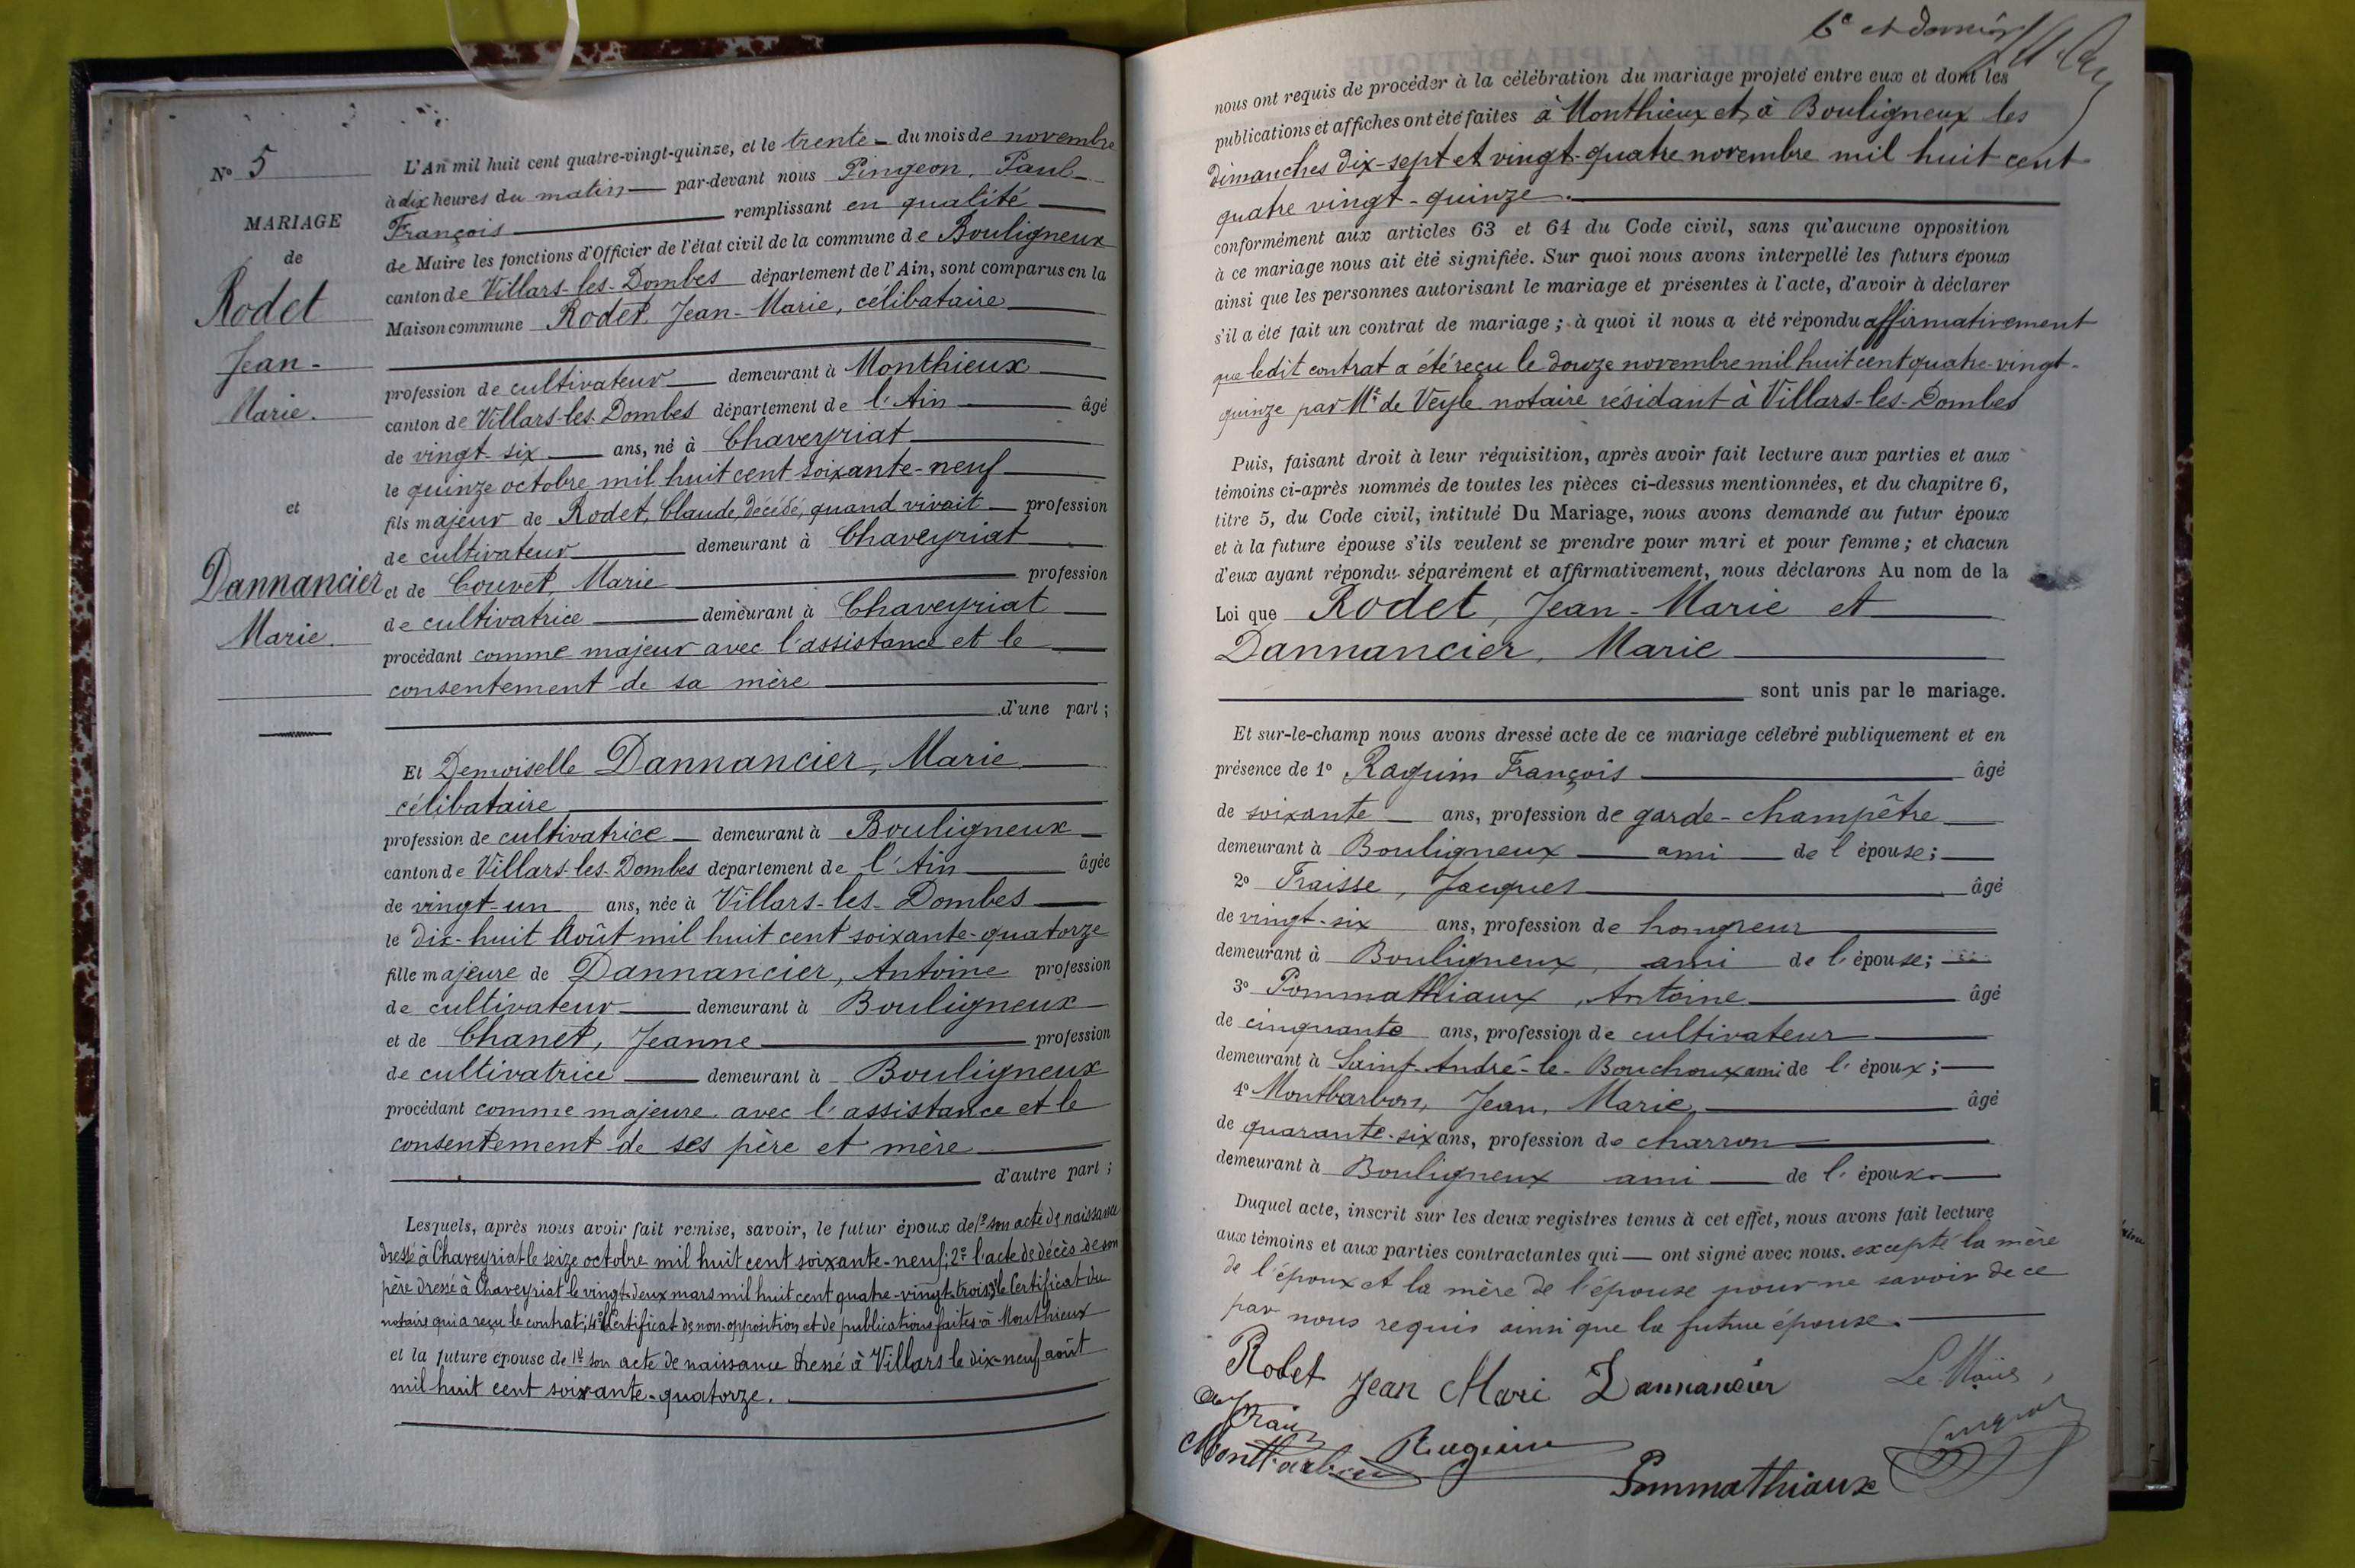 N° 5
MARIAGE
de
Rodet
Jean-
Marie.
et
Dannancier
Marie.
L'An mil huit cent quatre-vingt-quinze, et le trente du mois de novembre
à dix heures du matin par-devant nous Pingeon, Paul-
François remplissant en qualité
de Maire les fonctions d'Officier de l'état civil de la commune de Bouligneux
canton de Villars-les-Dombes département de l'Ain, sont comparus en la
Maison commune Rodet, Jean-Marie, célibataire
profession de cultivateur demeurant à Monthieux
canton de Villars-les-Dombes département de l'Ain âgé
de vingt-six ans, né à Chaveyriat
le quinze octobre mil huit cent soixante-neuf
fils majeur de Rodet, Claude, décédé, quand vivait profession
de cultivateur demeurant à Chaveyriat
et de Couvet, Marie profession
de cultivatrice demeurant à Chaveyriat
procédant comme majeur avec l'assistance et le
consentement de sa mère
d'une part;
Et Demoiselle Dannancier, Marie
célibataire
profession de cultivatrice demeurant à Bouligneux
canton de Villars-les-Dombes département de l'Ain âgée
de vingt-un ans, née à Villars-les-Dombes
le dix-huit Août mil huit cent soixante-quatorze
fille majeure de Dannancier, Antoine profession
de cultivateur demeurant à Bouligneux
et de Chanet, Jeanne profession
de cultivatrice demeurant à Bouligneux
procédant comme majeure avec l'assistance et le
consentement de ses père et mère
d'autre part;
Lesquels, après nous avoir fait remise, savoir, le futur époux de 1° son acte de naissance
dressé à Chaveyriat le seize octobre mil huit cent soixante-neuf; 2° l'acte de décès de son
père dressé à Chaveyriat le vingt-deux mars mil huit cent quatre-vingt-trois; 3° le Certificat du
notaire qui a reçu le contrat; 4° Certificat de non-opposition et de publications faites à Monthieux
et la future épouse de 1° son acte de naissance dressé à Villars le dix-neuf août
mil huit cent soixante-quatorze.
6e et dernier
nous ont requis de procéder à la célébration du mariage projeté entre eux et dont les
publications et affiches ont été faites à Monthieux et à Bouligneux les
dimanches dix-sept et vingt-quatre novembre mil huit cent
quatre vingt-quinze.
conformément aux articles 63 et 64 du Code civil, sans qu'aucune opposition
à ce mariage nous ait été signifiée. Sur quoi nous avons interpellé les futurs époux
ainsi que les personnes autorisant le mariage et présentes à l'acte, d'avoir à déclarer
s'il a été fait un contrat de mariage; à quoi il nous a été répondu affirmativement
que ledit contrat a été reçu le douze novembre mil huit cent quatre-vingt-
quinze par Me de Veyle notaire résidant à Villars-les-Dombes
Puis, faisant droit à leur réquisition, après avoir fait lecture aux parties et aux
témoins ci-après nommés de toutes les pièces ci-dessus mentionnées, et du chapitre 6,
titre 5, du Code civil, intitulé Du Mariage, nous avons demandé au futur époux
et à la future épouse s'ils veulent se prendre pour mari et pour femme; et chacun
d'eux ayant répondu séparément et affirmativement, nous déclarons Au nom de la
Loi que Rodet, Jean-Marie et
Dannancier, Marie
sont unis par le mariage.
Et sur-le-champ nous avons dressé acte de ce mariage célébré publiquement et en
présence de 1° Raguin François âgé
de soixante ans, profession de garde-champêtre
demeurant à Bouligneux ami de l'épouse;
2° Fraisse, Jacques âgé
de vingt-six ans, profession de hongreur
demeurant à Bouligneux, ami de l'épouse;
3° Pommathiaux, Antoine âgé
de cinquante ans, profession de cultivateur
demeurant à Saint-André-le-Bouchoux ami de l'époux;
4° Montbarbon, Jean, Marie, âgé
de quarante-six ans, profession de charron
demeurant à Bouligneux ami de l'époux.
Duquel acte, inscrit sur les deux registres tenus à cet effet, nous avons fait lecture
aux témoins et aux parties contractantes qui ont signé avec nous. excepté la mère
de l'époux et la mère de l'épouse pour ne savoir de ce
par nous requis ainsi que la future épouse.
Rodet Jean Mari Dannancier Le Maire,
Montbarbon Raguin
Pommathiaux